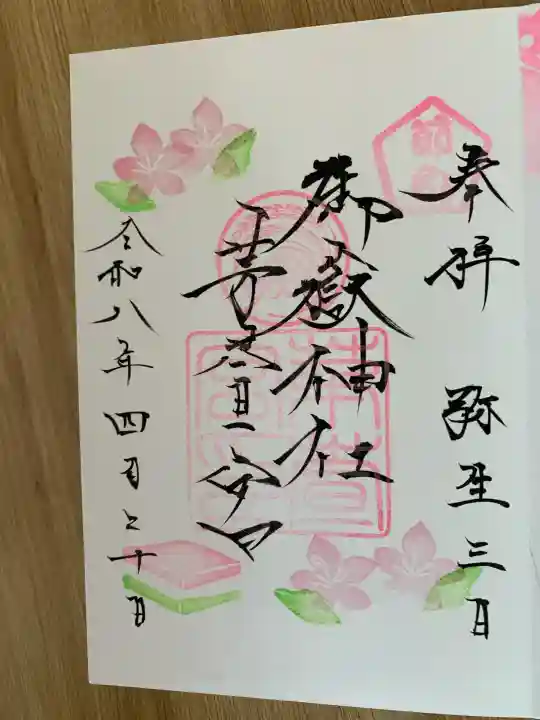 奉拝 弥生三日
御嶽神社
茅萱宮
令和八年四月二十日